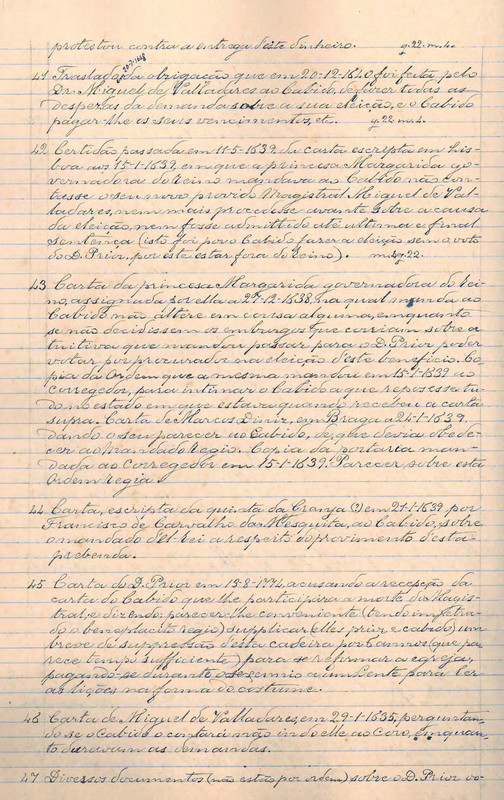 protestou contra a entrega d'este dinheiro. g. 22. m. 4.
41 Traslado da obrigação que em 20-12-1640 foi feita pelo
Dr. Miguel de Valladares ao Cabido, de fazer todas as
despezas da demanda sobre a sua eleição, e o Cabido
pagar-lhe os seus vencimentos, etc. g. 22 m. 4.
42 Certidão passada em 11-5-1639 da carta escripta em Lis-
bôa aos 15-1-1639, em que a princesa Margarida go-
vernadora do reino mandava ao Cabido não con-
tasse o seu novo provido Magistral Miguel de Val-
ladares, nem mais procedesse avante sobre a causa
da eleição, nem fosse admittido até ultima e final
sentença (isto foi por o Cabido fazer a eleição sem o voto
do D. Prior, por este estar fora do reino). m. 4 g. 22.
43 Carta da princesa Margarida governadora do rei-
no, assignada por ella a 27-12-1638, na qual manda ao
Cabido não altere em cousa alguma, emquanto
se não decidissem os embargos que corriam sobre a
tuitiva que mandou passar para o D. Prior poder
votar por procurador na eleição d'este beneficio. Co-
pia da Ordem que a mesma mandou em 15-1-1639 ao
corregedor, para intimar o Cabido a que repozesse tu-
do no estado em que estava quando recebeu a carta
supra. Carta de Marcos Diniz, em Braga a 24-1-1639,
dando o seu parecer ao Cabido, de, que devia obede-
cer ao Mandado Regio. Copia da portaria man-
dada ao Corregedor em 15-1-1639. Parecer sobre esta
Ordem Regia.
44 Carta, escripta da quinta da Granja (?) em 21-1-1639 por
Francisco de Carvalho da Mesquita, ao Cabido, sobre
o mandado d'El-rei a respeito do provimento d'esta
prebenda.
45 Carta do D. Prior em 13-8-1774, acusando a recepção da
carta do Cabido que lhe participára a morte do Magis-
tral, e dizendo: parecer-lhe conveniente (tendo impetra-
do o beneplacito regio) supplicar (elles, prior e cabido) um
breve de suppressão d'esta cadeira por 6 annos (que pa-
rece tempo sufficiente) para se reformar a egreja,
pagando-se durante o sexennio a um Lente para ler
as lições na forma do costume.
46 Carta de Miguel de Valladares, em 29-1-1635, perguntan-
do se o Cabido o contará não indo elle ao Coro, emquan-
to duravam as demandas.
47 Diversos documentos (não estão por ordem) sobre o D. Prior vo-